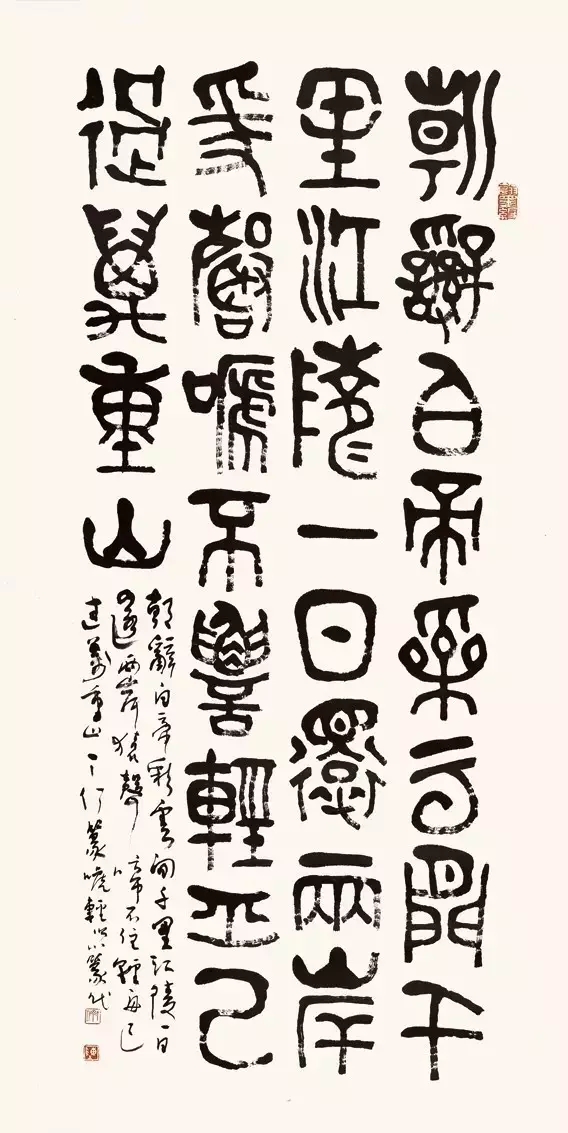 朝辭白帝采云間千
里江陵一日還兩岸
爰聲嗁不輕舟已
過萬重山
朝辭白帝彩雲間千里江陵一日
還兩岸猿聲啼不住輕舟已
過萬重山 篆